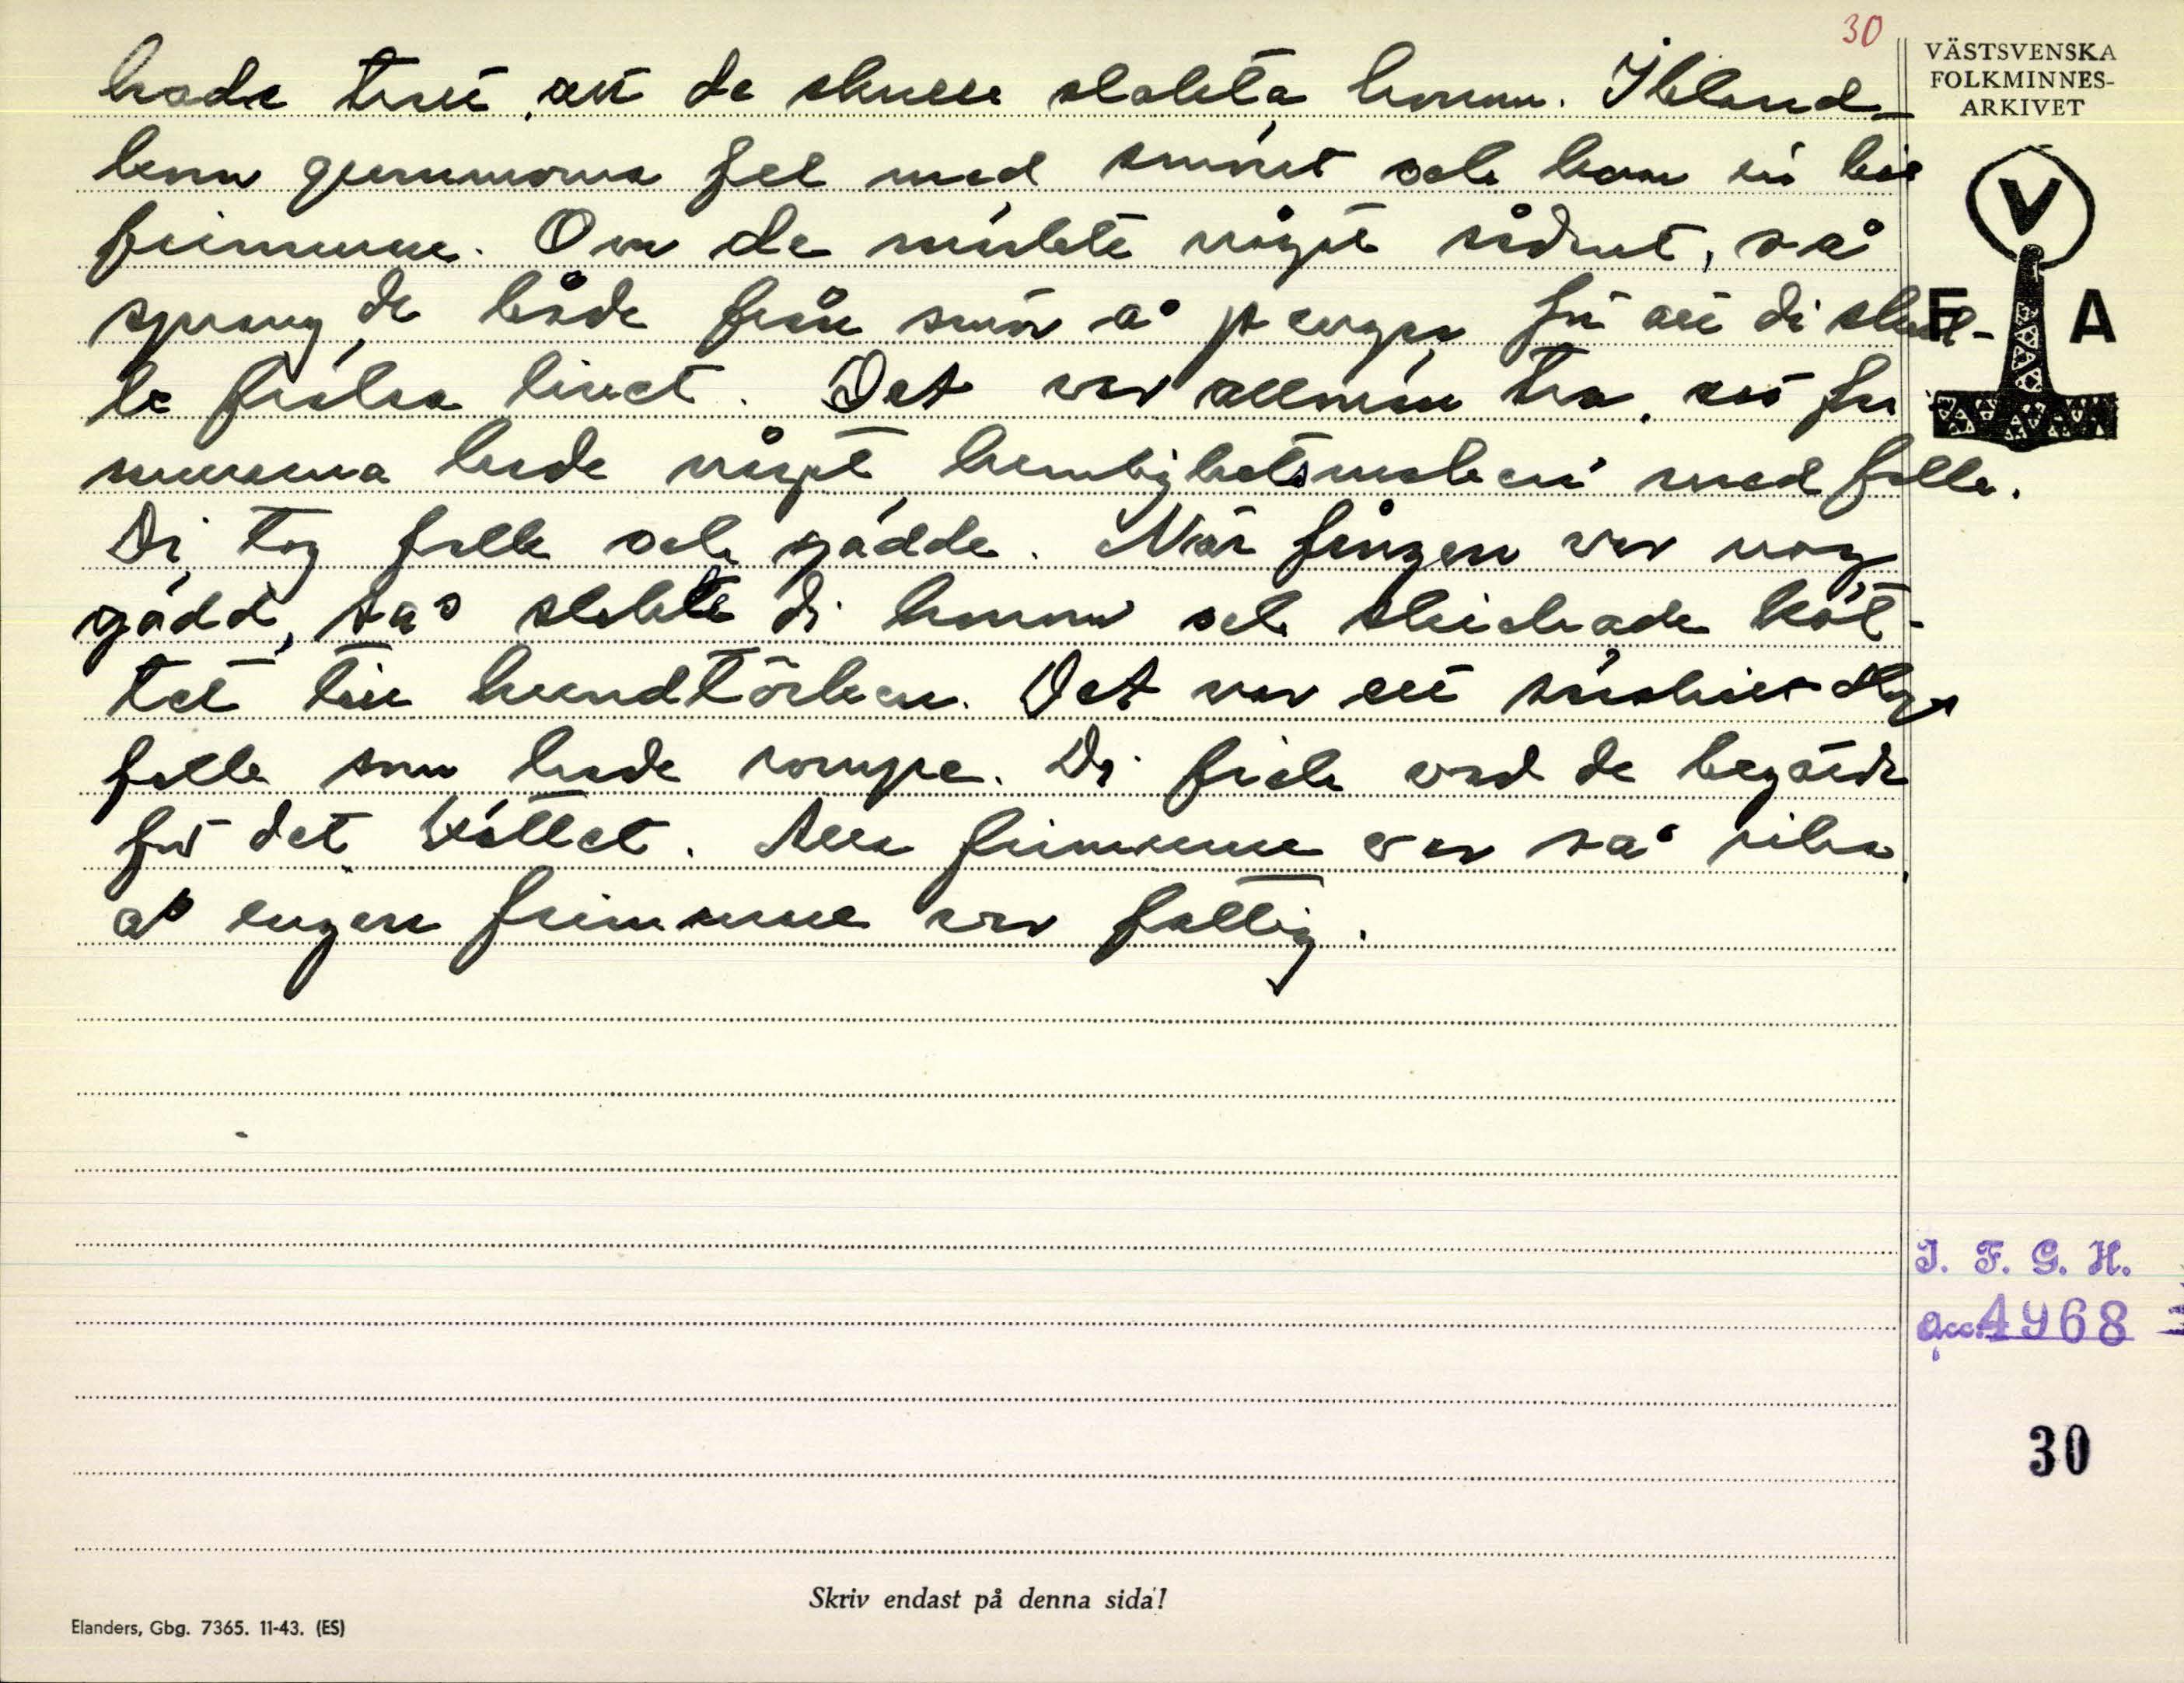 30
VÄSTSVENSKA
FOLKMINNES-
ARKIVET
V
F A
hade trott, att de skulle slakta honom. Ibland
kom gummorna fel med smöret och kom in hos
frimurare. Om de märkte något sådant, så
sprang de både från smör å pengar för att di skul-
le frälsa livet. Det var allmän tro, att fri
murarna hade något hemlighetsmakeri med folk.
Di tog folk och gödde. När fången var nog
gödd, så slaktte di honom och skickade köt-
tet till hundtörken. Det var ett särskilt slags
folk som hade rompe. Di fick vad de begärde
för det köttet. Alla frimurare var så rika
at engen frimurare var fattig.
J. F. G. H.
Acc. 4968
30
Skriv endast på denna sida!
Elanders, Gbg. 7365. 11-43. (ES)